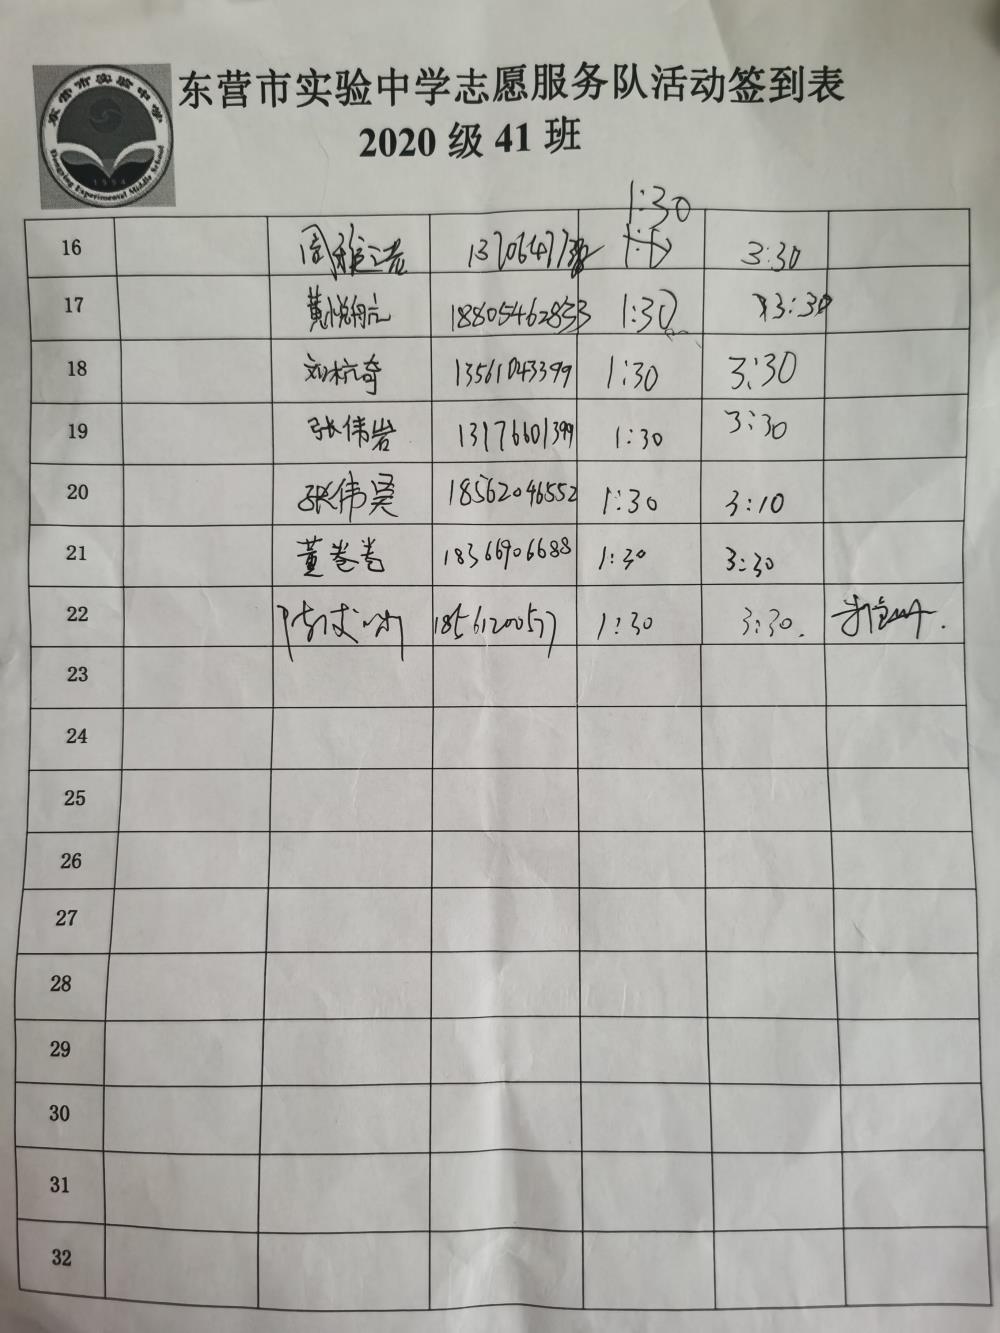 东营市实验中学
Dongying Experimental Middle School
1994
东营市实验中学志愿服务队活动签到表
2020 级 41 班
1:30
16 周雅 3:30
17 黄悦航 18805462833 1:30 3:30
18 刘杭奇 13561043399 1:30 3:30
19 张伟岩 13176601399 1:30 3:30
20 张伟昊 18562046552 1:30 3:10
21 董卷卷 18366906688 1:30 3:30
22 1:30 3:30.
23
24
25
26
27
28
29
30
31
32